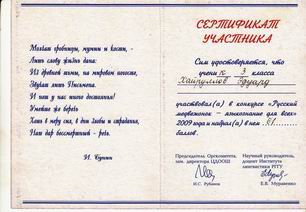 Молчат гробницы, мумии и кости, -
Лишь слову жизнь дана:
Из древней тьмы, на мировом погосте,
Звучат лишь Письмена.
И нет у нас иного достоянья!
Умейте же беречь
Хоть в меру сил, в дни злобы и страданья,
Наш дар бессмертный - речь.
И. Бунин
СЕРТИФИКАТ
УЧАСТНИКА
Сим удостоверяется, что
учени к 3 класса
Хайруллов Эдуард
участвовал(а) в конкурсе «Русский
медвежонок – языкознание для всех»
2009 года и набрал(а) в нем 61
баллов.
Председатель Оргкомитета,
зам. директора ЦДООШ
И.С. Рубанов
Научный руководитель,
доцент Института
лингвистики РГГУ
Е.В. Муравенко